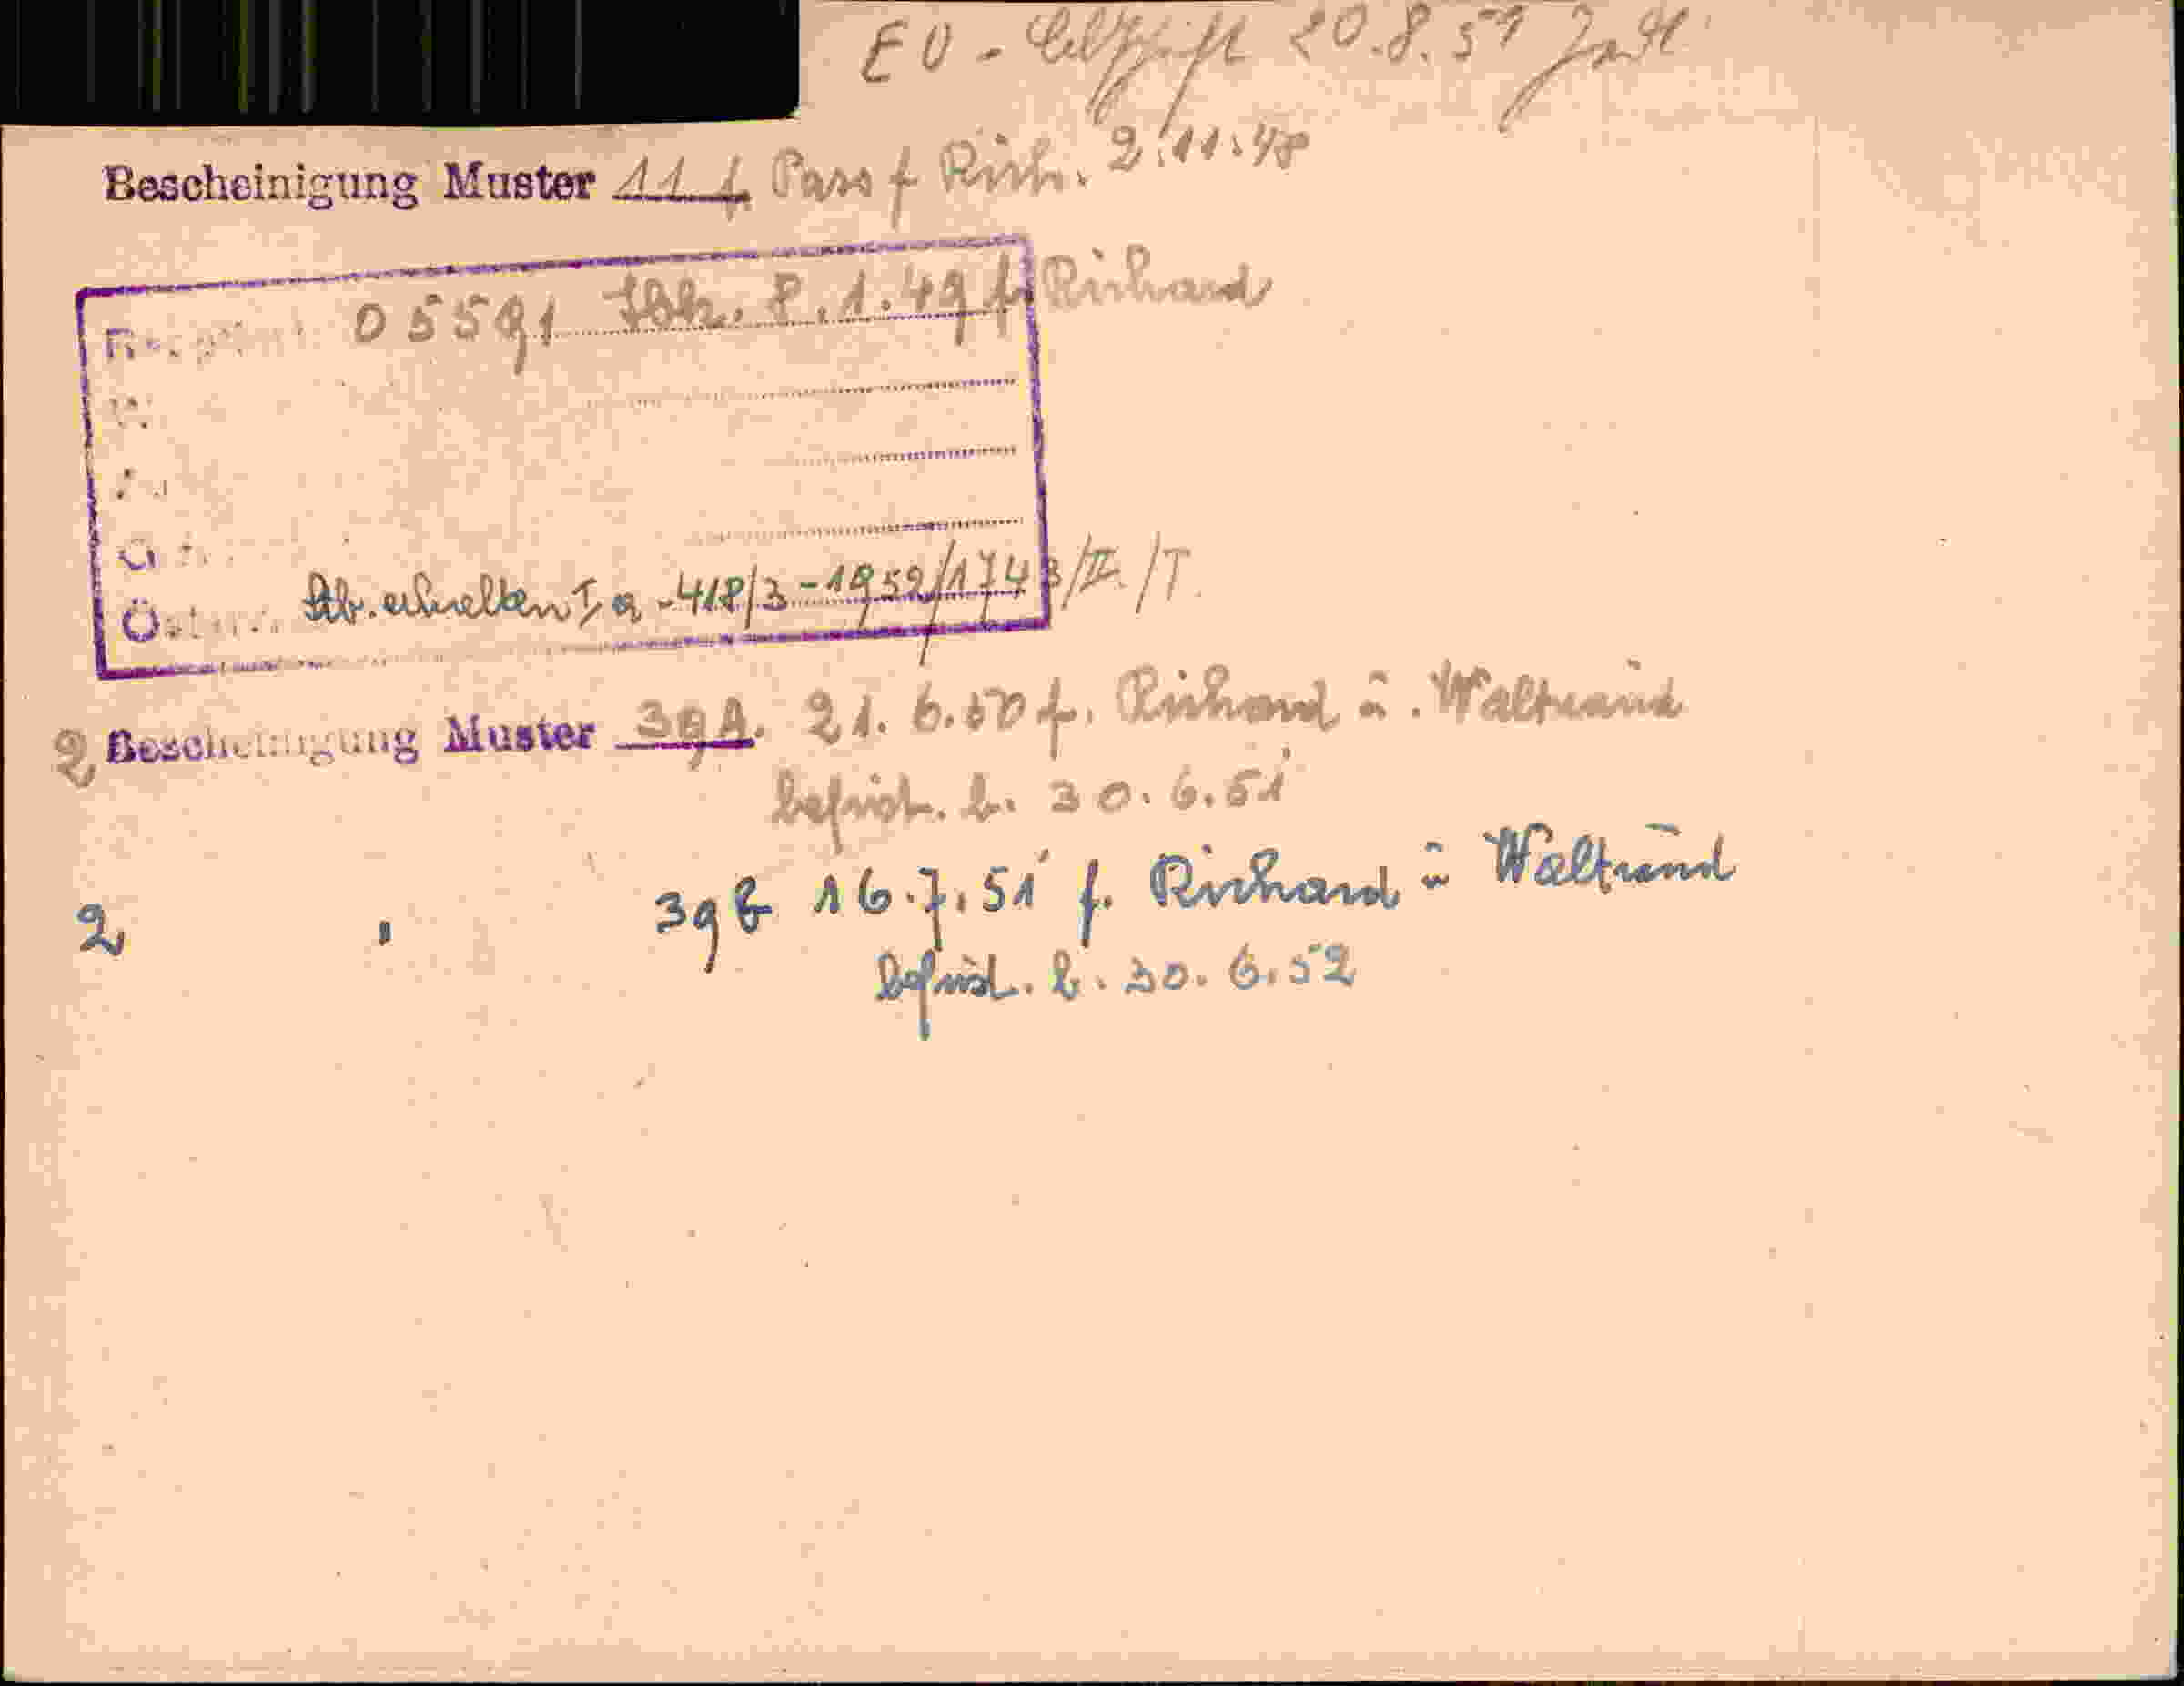 EU - 20.8.59
Bescheinigung Muster 11 f. Pass f Rich. 2.11.48
05591 8.1.49 f. Richard
erhielten I, a -418/3-1952/1743/II./T.
2 Bescheinigung Muster 39A. 21. 6.50 f. Richard u. Waltraud
befrist. b. 30.6.51
2 " 39b 16.7.51 f. Richard u Waltraud
befrist. b. 30.6.52